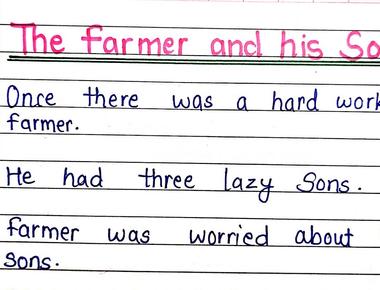 The Farmer and his So
Once there was a hard work
farmer.
He had three lazy Sons.
farmer was worried about
sons.